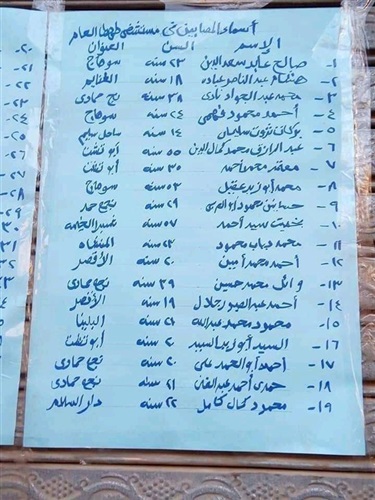 أسماء المصابين في مستشفى طهطا العام
الاسم السن العنوان
١- صالح عابد سعد الدين ٢٣ سنه سوهاج
٢- هشام عبد الناصر عباده ٣٨ سنه
٣- محمد عبد الجواد نادى ٣٨ سنه نجع حمادى
٤- أحمد محمود فهمى ٢٤ سنه سوهاج
٥- ثروت سليمان ١٤ سنه ساحل سليم
٦- عبد الرازق محمد كمال الدين ٥٥ سنه أبو تشت
٧- معتمد محمد أحمد ٣٥ سنه أبو تشت
٨- محمد أبو زيد عقيل ٥٣ سنه سوهاج
٩- حسانين محمود ٢٩ سنه نجع حمد
١٠- بخيت سيد أحمد ٥٧ سنه
١١- محمد دياب محمود ٢٣ سنه المنشاه
١٢- أحمد محمد أمين ٢٠ سنه الأقصر
١٣- وائل محمد حسين ٣٩ سنه نجع حمادى
١٤- أحمد عبد الصبور جلال ١٩ سنه الأقصر
١٥- محمود محمد عبد اللاه ٢٦ سنه البلينا
١٦- السيد أبو زيد السيد ٢٠ سنه أبو تشت
١٧- أحمد أبو الحمد على ٢٠ سنه نجع حمادى
١٨- حمدى أحمد عبد الغنى ٢١ سنه نجع حمادى
١٩- محمود كمال كامل ٢٢ سنه دار السلام
٢٠-
٢١-